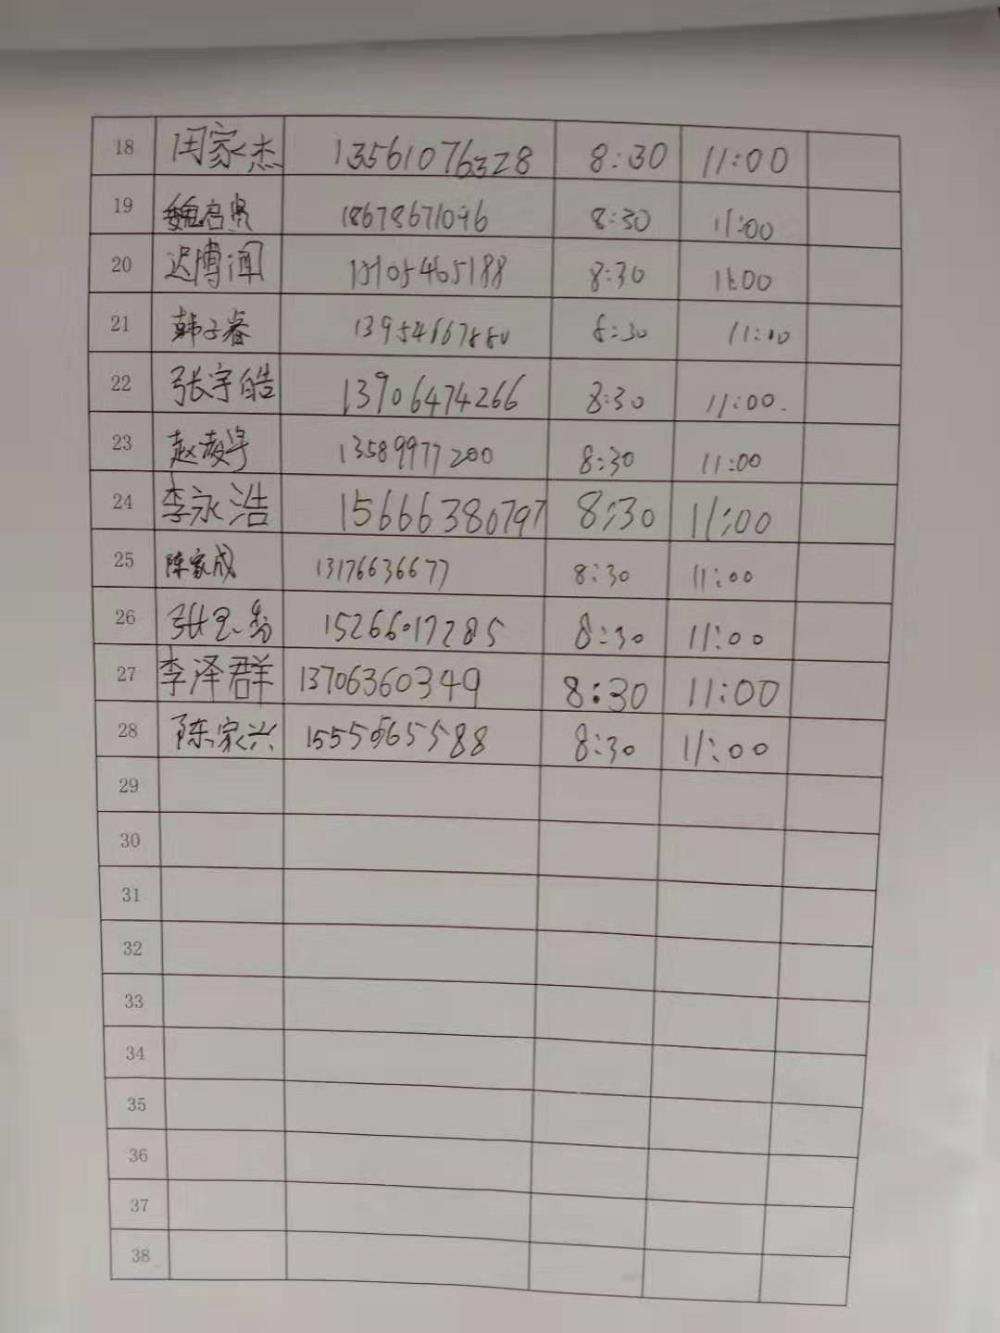 18 闫家杰 13561076328 8:30 11:00
19 魏启贤 18678671096 8:30 11:00
20 迟博闻 15105465188 8:30 11:00
21 韩子睿 8:30 11:00
22 张宇皓 13906474266 8:30 11:00.
23 13589977200 8:30 11:00
24 李永浩 15666380797 8:30 11:00
25 陈家成 13176636677 8:30 11:00
26 15266017285 8:30 11:00
27 李泽群 13706360349 8:30 11:00
28 陈家兴 8:30 11:00
29
30
31
32
33
34
35
36
37
38